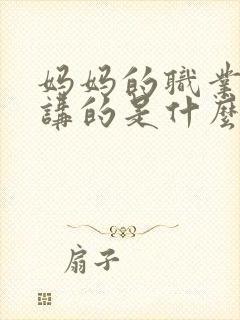 妈妈的職業
講的是什麼
扇子